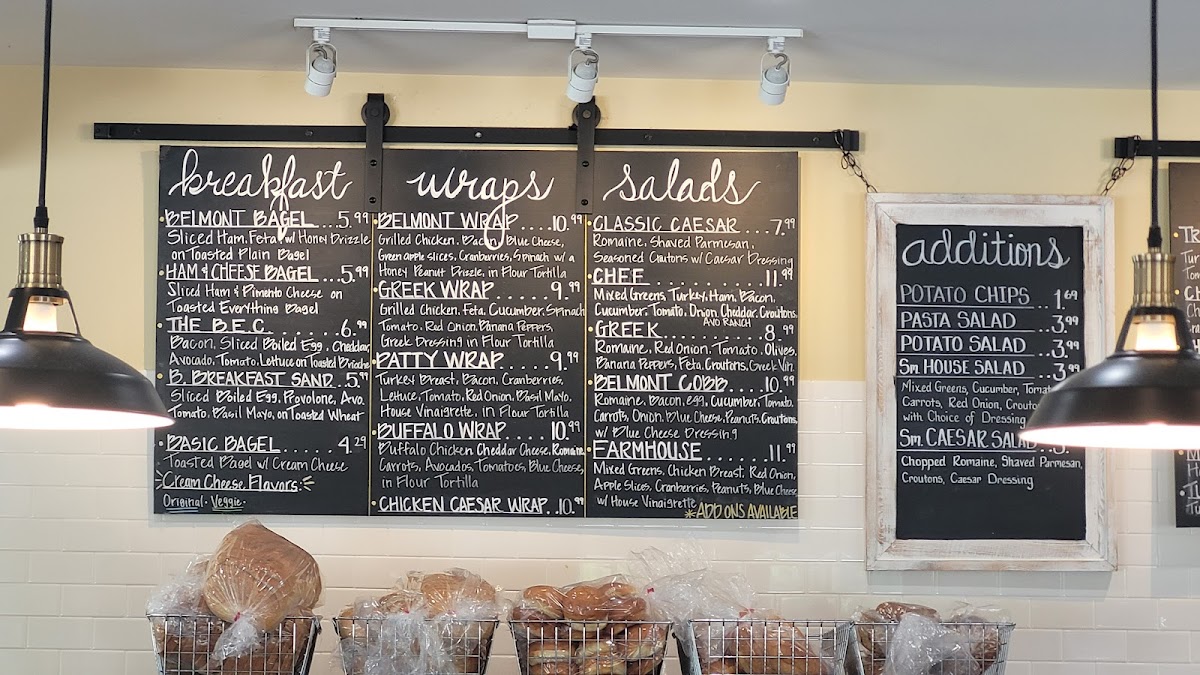 breakfast
BELMONT BAGEL....5.99
Sliced Ham, Feta, w/ Honey Drizzle
on Toasted Plain Bagel
HAM & CHEESE BAGEL..5.99
Sliced Ham & Pimento Cheese on
Toasted Everything Bagel
THE B.E.C.......6.99
Bacon, Sliced Boiled Egg, Cheddar,
Avocado, Tomato, Lettuce on Toasted Brioche
B. BREAKFAST SAND..5.99
Sliced Boiled Egg, Provolone, Avo.
Tomato, Basil Mayo, on Toasted Wheat
BASIC BAGEL......4.29
Toasted Bagel w/ Cream Cheese
Cream Cheese Flavors:
Original · Veggie ·
wraps
BELMONT WRAP....10.99
Grilled Chicken, Bacon, Blue Cheese,
Green apple slices, Cranberries, Spinach w/ a
Honey Peanut Drizzle, in Flour Tortilla
GREEK WRAP......9.99
Grilled Chicken, Feta, Cucumber, Spinach
Tomato, Red Onion, Banana Peppers,
Greek Dressing in Flour Tortilla
PATTY WRAP.....9.99
Turkey Breast, Bacon, Cranberries,
Lettuce, Tomato, Red Onion, Basil Mayo,
House Vinaigrette, in Flour Tortilla
BUFFALO WRAP.....10.99
Buffalo Chicken Cheddar Cheese, Romaine,
Carrots, Avocados, Tomatoes, Blue Cheese,
in Flour Tortilla
CHICKEN CAESAR WRAP..10.99
salads
CLASSIC CAESAR....7.99
Romaine, Shaved Parmesan,
Seasoned Croutons w/ Caesar Dressing
CHEF............11.99
Mixed Greens, Turkey, Ham, Bacon,
Cucumber, Tomato, Onion, Cheddar, Croutons,
AND RANCH
GREEK..........8.99
Romaine, Red Onion, Tomato, Olives,
Banana Peppers, Feta, Croutons, Greek Vin.
BELMONT COBB....10.99
Romaine, Bacon, egg, Cucumber, Tomato,
Carrots, Onion, Blue Cheese, Peanuts, Croutons,
w/ Blue Cheese Dressing
FARMHOUSE.......11.99
Mixed Greens, Chicken Breast, Red Onion,
Apple Slices, Cranberries, Peanuts, Blue Cheese
w/ House Vinaigrette
*ADD ONS AVAILABLE
additions
POTATO CHIPS...1.69
PASTA SALAD....3.99
POTATO SALAD...3.99
Sm. HOUSE SALAD..3.99
Mixed Greens, Cucumber,
Carrots, Red Onion,
with Choice of Dressing
Sm. CAESAR SALAD
Chopped Romaine, Shaved Parmesan,
Croutons, Caesar Dressing